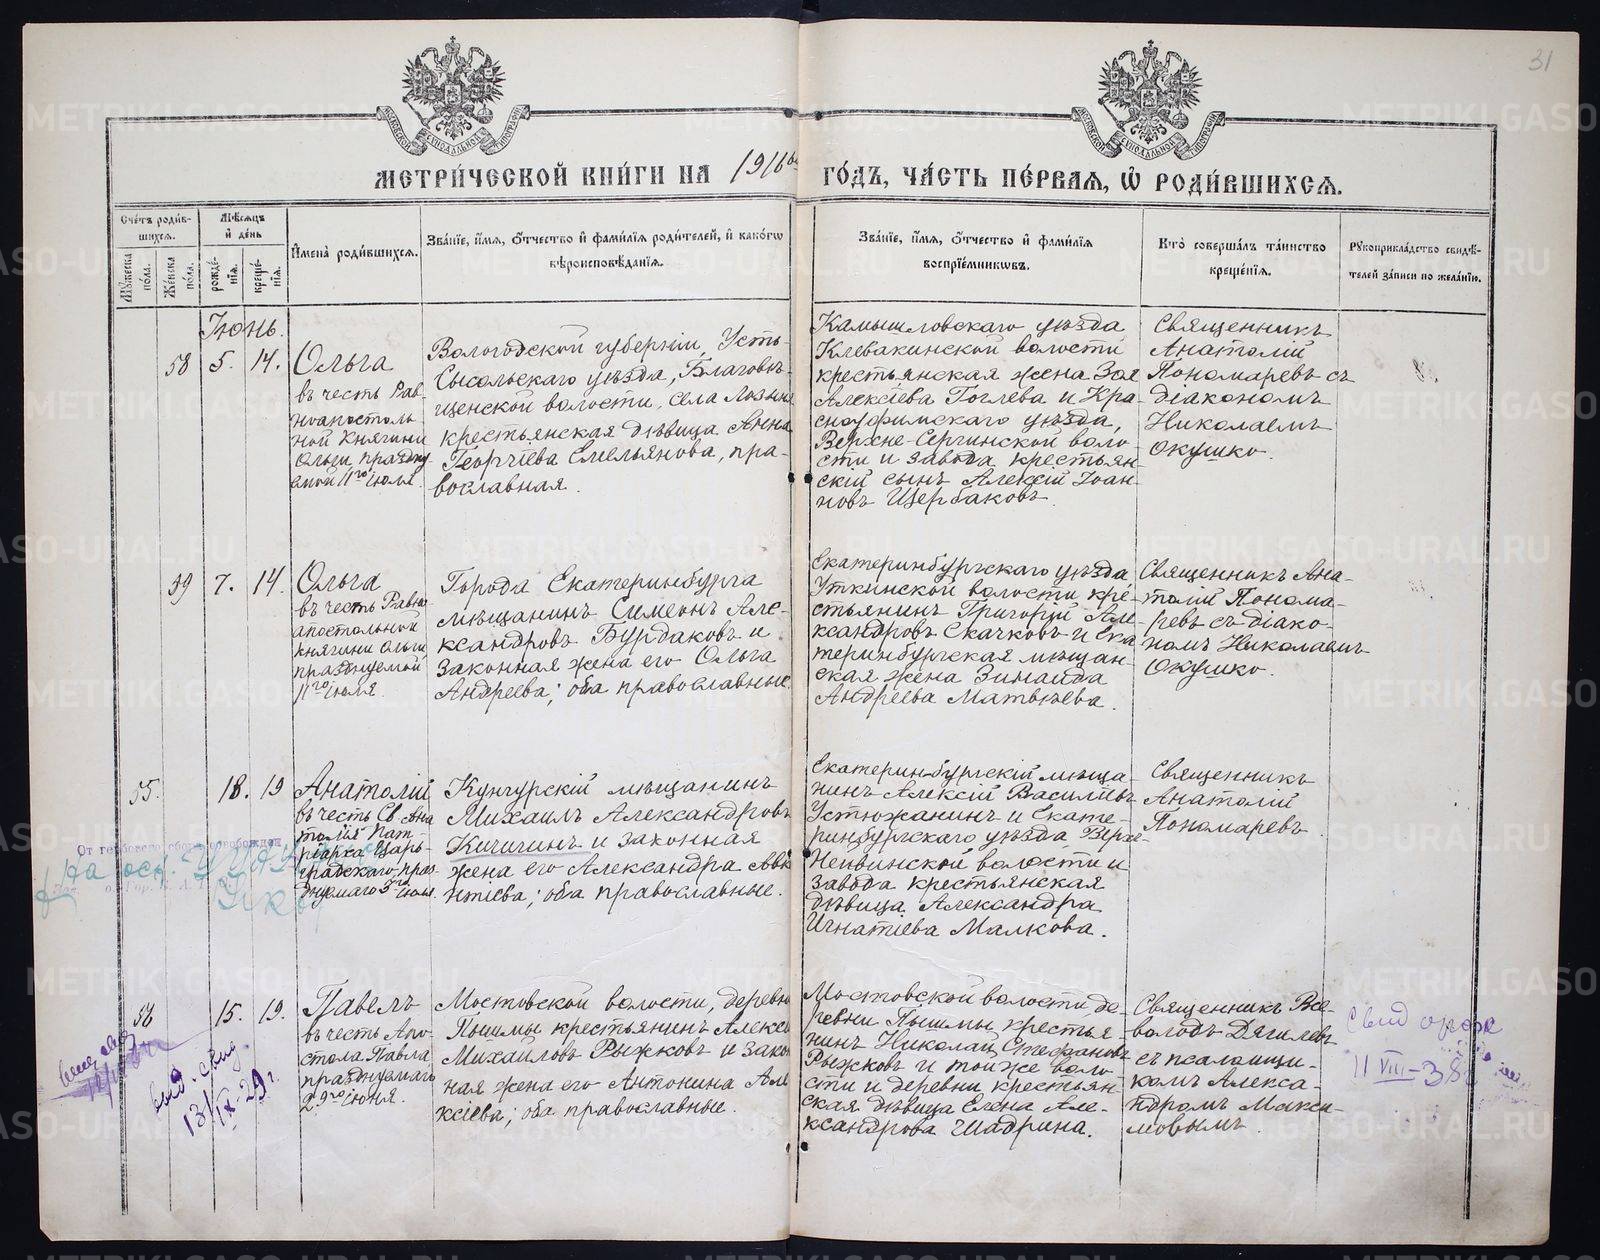 31
МЕТРИ́ЧЕСКОЙ КНИ́ГИ НА 1916й ГО́ДЪ, ЧА́СТЬ ПЕ́РВАЯ, Ѽ РОДИ́ВШИХСЯ.
Сче́тъ роди́в-
шихся.
Мѣ́сяцъ
и҆ де́нь
Мꙋ́жеска
по́ла.
Же́нска
по́ла.
рожде́-
нїя.
креще́-
нїя.
И҆мена̀ роди́вшихся.
Зва́нїе, и҆́мя, ѻ҆́тчество и҆ фами́лїя роди́телей, и҆ како́гѡ
вѣроисповѣ́данїя.
Зва́нїе, и҆́мя, ѻ҆́тчество и҆ фами́лїя
воспрїе́мникѡвъ.
Кто̀ соверша́лъ та́инство
креще́нїя.
Рꙋкоприкла́дство свидѣ́-
телей за́писи по жела́нїю.
Іюнь.
58 5. 14. Ольга
въ честь Рав-
ноапостоль
ной Княгини
Ольги праздну
емой 11го іюля.
Вологодской губерніи, Усть-
Сысольскаго уѣзда, Благовѣ-
щенской волости, села Лозыма
крестьянская дѣвица Анна
Георгіева Емельянова, пра-
вославная.
Камышловскаго уѣзда
Клевакинской волости
крестьянская жена Зоя
Алексіева Гоглева и Кра-
сноуфимскаго уѣзда,
Верхне-Сергинской воло-
сти и завода крестьян-
скій сынъ Алексій Іоан-
новъ Щербаковъ.
Священникъ
Анатолій
Пономаревъ съ
діакономъ
Николаемъ
Окушко.
59 7. 14. Ольга
въ честь Равно
апостольной
княгини Ольги,
празднуемой
11го іюля.
Города Екатеринбурга
мѣщанинъ Симеонъ Але-
ксандровъ Бурдаковъ и
законная жена его Ольга
Андреева; оба православные.
Екатеринбургскаго уѣзда
Уткинской волости кре-
стьянинъ Григорій Але-
ксандровъ Скачковъ и Ека
теринбургская мѣщан-
ская жена Зинаида
Андреева Матвѣева.
Священникъ Ана-
толій Понома-
ревъ съ діако-
номъ Николаемъ
Окушко.
55. 18. 19 Анатолій
въ честь Св. Ана
толія Пат-
ріарха Царь-
градскаго, праз
днуемаго 3го іюля.
От гербового сбора освобожден
На осн.
Кунгурскій мѣщанинъ
Михаилъ Александровъ
Кичигинъ и законная
жена его Александра Авк
нтіева; оба православные.
Екатеринбургскій мѣща-
нинъ Алексій Василіевъ
Устюжанинъ и Екате-
ринбургскаго уѣзда Верхъ-
Нейвинской волости и
завода крестьянская
дѣвица Александра
Игнатіева Малкова.
Священникъ
Анатолій
Пономаревъ.
56 15. 19. Павелъ
въ честь Апо-
стола Павла
празднуемаго
29го іюня.
Мостовской волости, деревни
Пышмы крестьянинъ Алексій
Михаиловъ Рыжковъ и закон
ная жена его Антонина Але
ксіева; оба православные.
Мостовской волости, де-
ревни Пышмы, крестья
нинъ Николай Стефановъ
Рыжковъ и той же воло-
сти и деревни крестьян-
ская дѣвица Елена Але-
ксандрова Шадрина.
Священникъ Все-
володъ Дягилевъ
съ псаломщи-
комъ Алекса-
ндромъ Макси-
мовымъ.
выд. свид.
13/IX-29г.
11 VIII-38г
METRIKI.GASO-URAL.RU